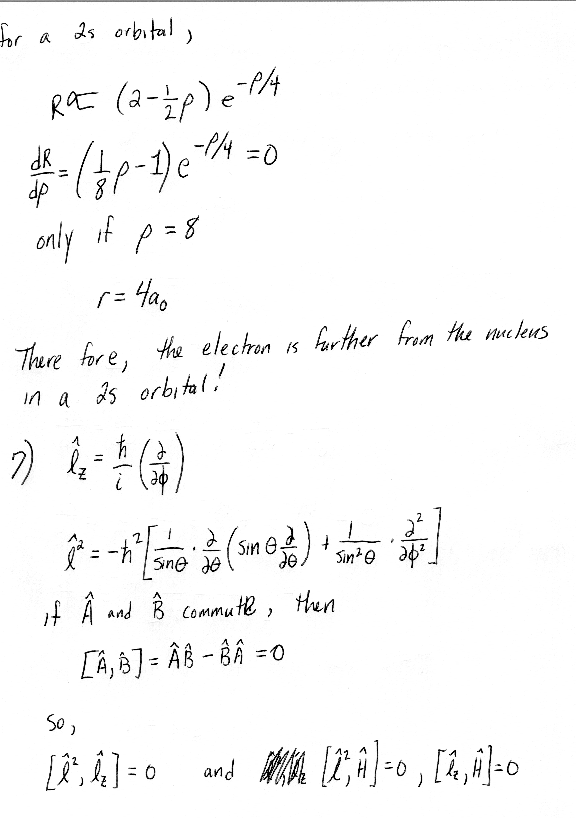 for a 2s orbital,
R∝ (2-½ρ) e^(-ρ/4)
dR/dρ = (1/8 ρ - 1) e^(-ρ/4) = 0
only if ρ = 8
r = 4a₀
There fore, the electron is further from the nucleus
in a 2s orbital!
7) l̂_z = ħ/i (∂/∂ϕ)
l̂² = -ħ² [1/sinθ · ∂/∂θ (sin θ ∂/∂θ) + 1/sin²θ · ∂²/∂ϕ²]
if Â and B̂ commute, then
[Â, B̂] = ÂB̂ - B̂Â = 0
So,
[l̂², l̂_z] = 0 and [l̂², Ĥ] = 0, [l̂_z, Ĥ] = 0